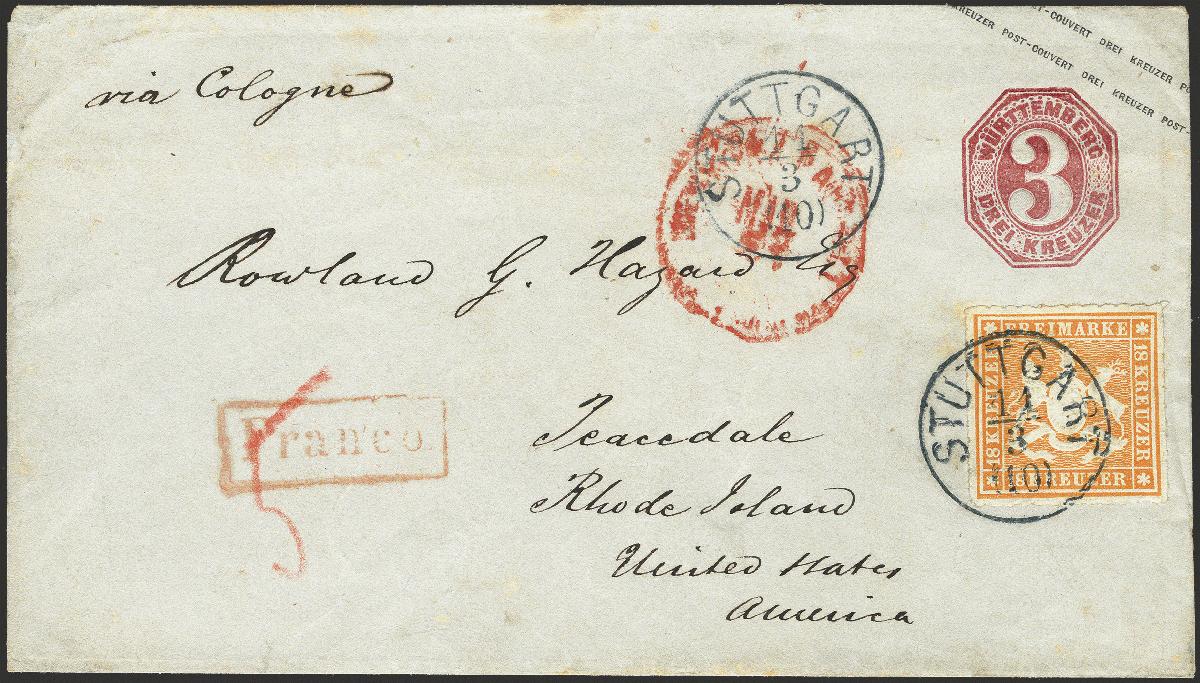 KREUZER POST-COUVERT DREI KREUZER POST-
T-COUVERT DREI KREUZER PO
via Cologne
STUTTGART
11
3
(10)
WÜRTTEMBERG
3
DREI KREUZER
Rowland G. Hazard Esq
FREIMARKE
18 KREUZER
18 KREUZER
18 KREUZER
STUTTGART
11
3
(10)
Franco.
5
Peacedale
Rhode Island
United States
America